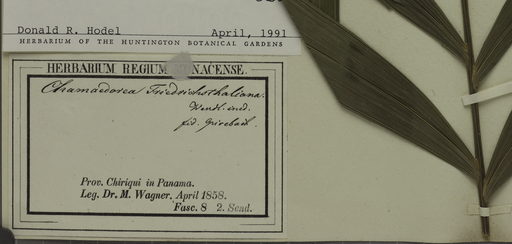 Donald R. Hodel April, 1991
HERBARIUM OF THE HUNTINGTON BOTANICAL GARDENS
HERBARIUM REGIUM NACENSE.
Chamaedorea Friedrichsthaliana.
Wendl. ined.
fid. Grisebach.
Prov. Chiriqui in Panama.
Leg. Dr. M. Wagner, April 1858.
Fasc. 8 2. Send.